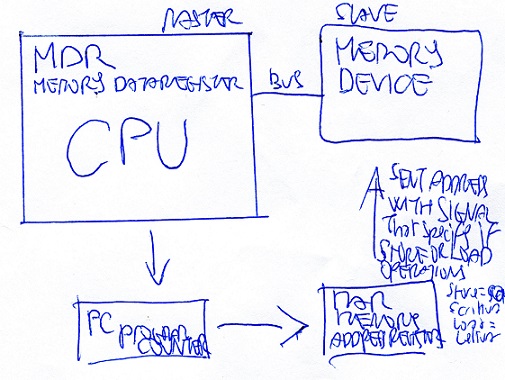 MASTER
SLAVE
MDR
MEMORY DATA REGISTER
CPU
BUS
MEMORY
DEVICE
SENT ADDRESS
WITH SIGNAL
That specify IF
STORE OR LOAD
OPERATIONS
PC PROGRAM
COUNTER
MAR
MEMORY
ADDRESS REGISTER
Store =
Scrittura
Load =
Lettura